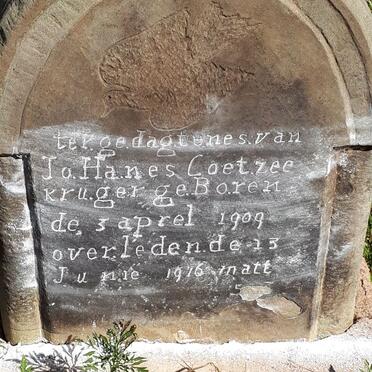 ter.gedagtenes.van
Jo.Ha.nes Coet.zee
kru.ger ge.Boren
de 3 aprel 1909
over.leden.de 13
Ju nie 1916 matt
5